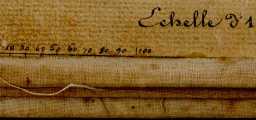 Echelle d'1
20 30 40 50 60 70 80 90 100